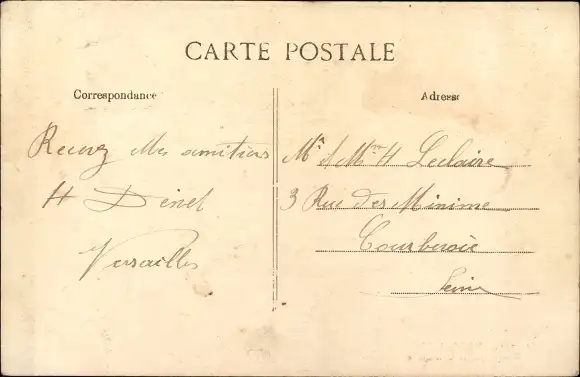 CARTE POSTALE
Correspondance
Adresse
Recevez Mes amitiés
H
Versailles
Mr et Mme H Leclaire
3 Rue des Minime
Courbevoie
Seine